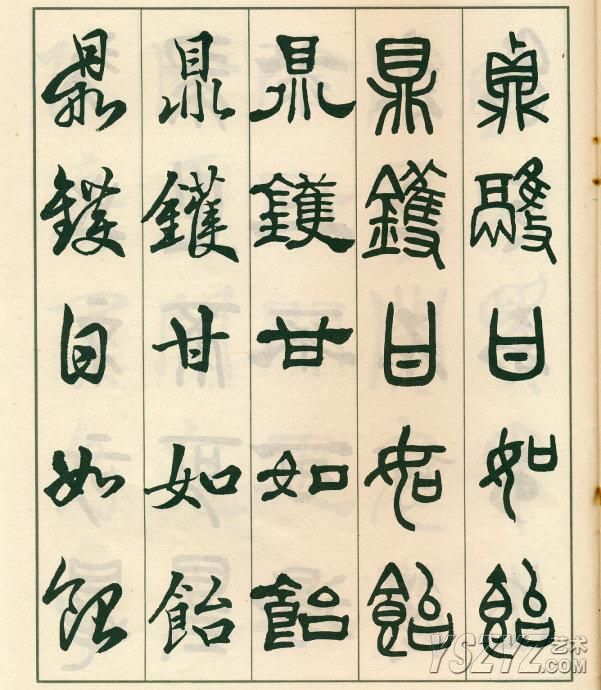 鼎鑊甘如飴
鼎鑊甘如飴
鼎鑊甘如飴
鼎鑊甘如飴
鼎鑊甘如飴
YSZYZ艺术